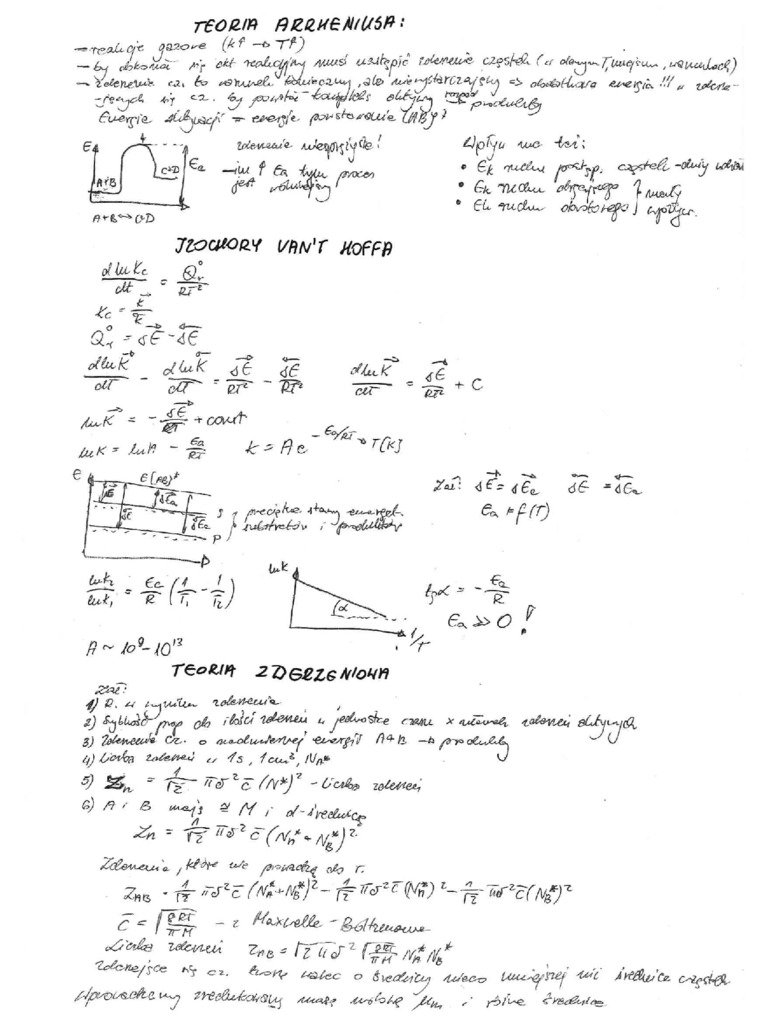 TEORIA ARRHENIUSA:
- reakcje gazowe (k↑ → T↑)
- by dokonał się akt reakcyjny musi nastąpić zderzenie cząstek (w danym T, miejscu, warunkach)
- zderzenie cz. to warunek konieczny, ale niewystarczający => dodatkowa energia!!! w zderza-
-jących się cz. by powstał kompleks aktywny rozpad produkty
Energia aktywacji = energia powstania (AB)*
E A+B C+D Ea
A+B ↔ C+D
zderzenie niesprężyste!
- im ↑ Ea tym proces
jest wolniejszy
Wpływ ma też:
• Ek ruchu postęp. cząstek - duży
• Ek ruchu drgającego } mały
• Ek ruchu obrotowego } wpływ.
IZOCHORY VAN'T HOFFA
dlnKc/dt = Q°r/RT²
Kc = k→/k←
Q°r = δE→ - δE←
dlnK→/dT - dlnK←/dT = δE→/RT² - δE←/RT² dlnK→/dT = δE→/RT² + C
lnK→ = - δE→/RT + const
lnK = lnA - Ea/RT k = A e^(-Ea/RT) → T[K]
E E[AB]* δE→ δE← δEa→ δEa← S P
} przeciętne stany energet.
substratów i produktów
Zał: δE→ = δEa→ δE← = δEa←
Ea ≠ f(T)
lnk₂/lnk₁ = Ea/R (1/T₁ - 1/T₂)
lnk α 1/T
tgα = - Ea/R
Ea >> 0 !
A ~ 10⁹ - 10¹³
TEORIA ZDERZENIOWA
Zał:
1) R. w wyniku zderzenia
2) Szybkość prop do ilości zderzeń w jednostce czasu x ułamek zderzeń aktywnych
3) Zderzenie cz. o nadmiernej energii A+B → produkty
4) Liczba zderzeń w 1s, 1cm³, NA*
5) Zn = 1/√2 πδ² c̄ (N*)² - Liczba zderzeń
6) A i B mają ≅ M i d-średnicę
Zn = 1/√2 πδ² c̄ (NA* + NB*)²
Zderzenia, które nie prowadzą do r.
ZAB = 1/√2 πδ² c̄ (NA* + NB*)² - 1/√2 πδ² c̄ (NA*)² - 1/√2 πδ² c̄ (NB*)²
c̄ = √(8RT/πM) - z Maxwella-Boltzmanna
Liczba zderzeń ZAB = √2 πδ² √(8RT/πM) NA* NB*
zderzające się cz. tworzą walec o średnicy nieco mniejszej niż średnica cząstek
Wprowadzamy zredukowaną masę molową μm i różne średnice